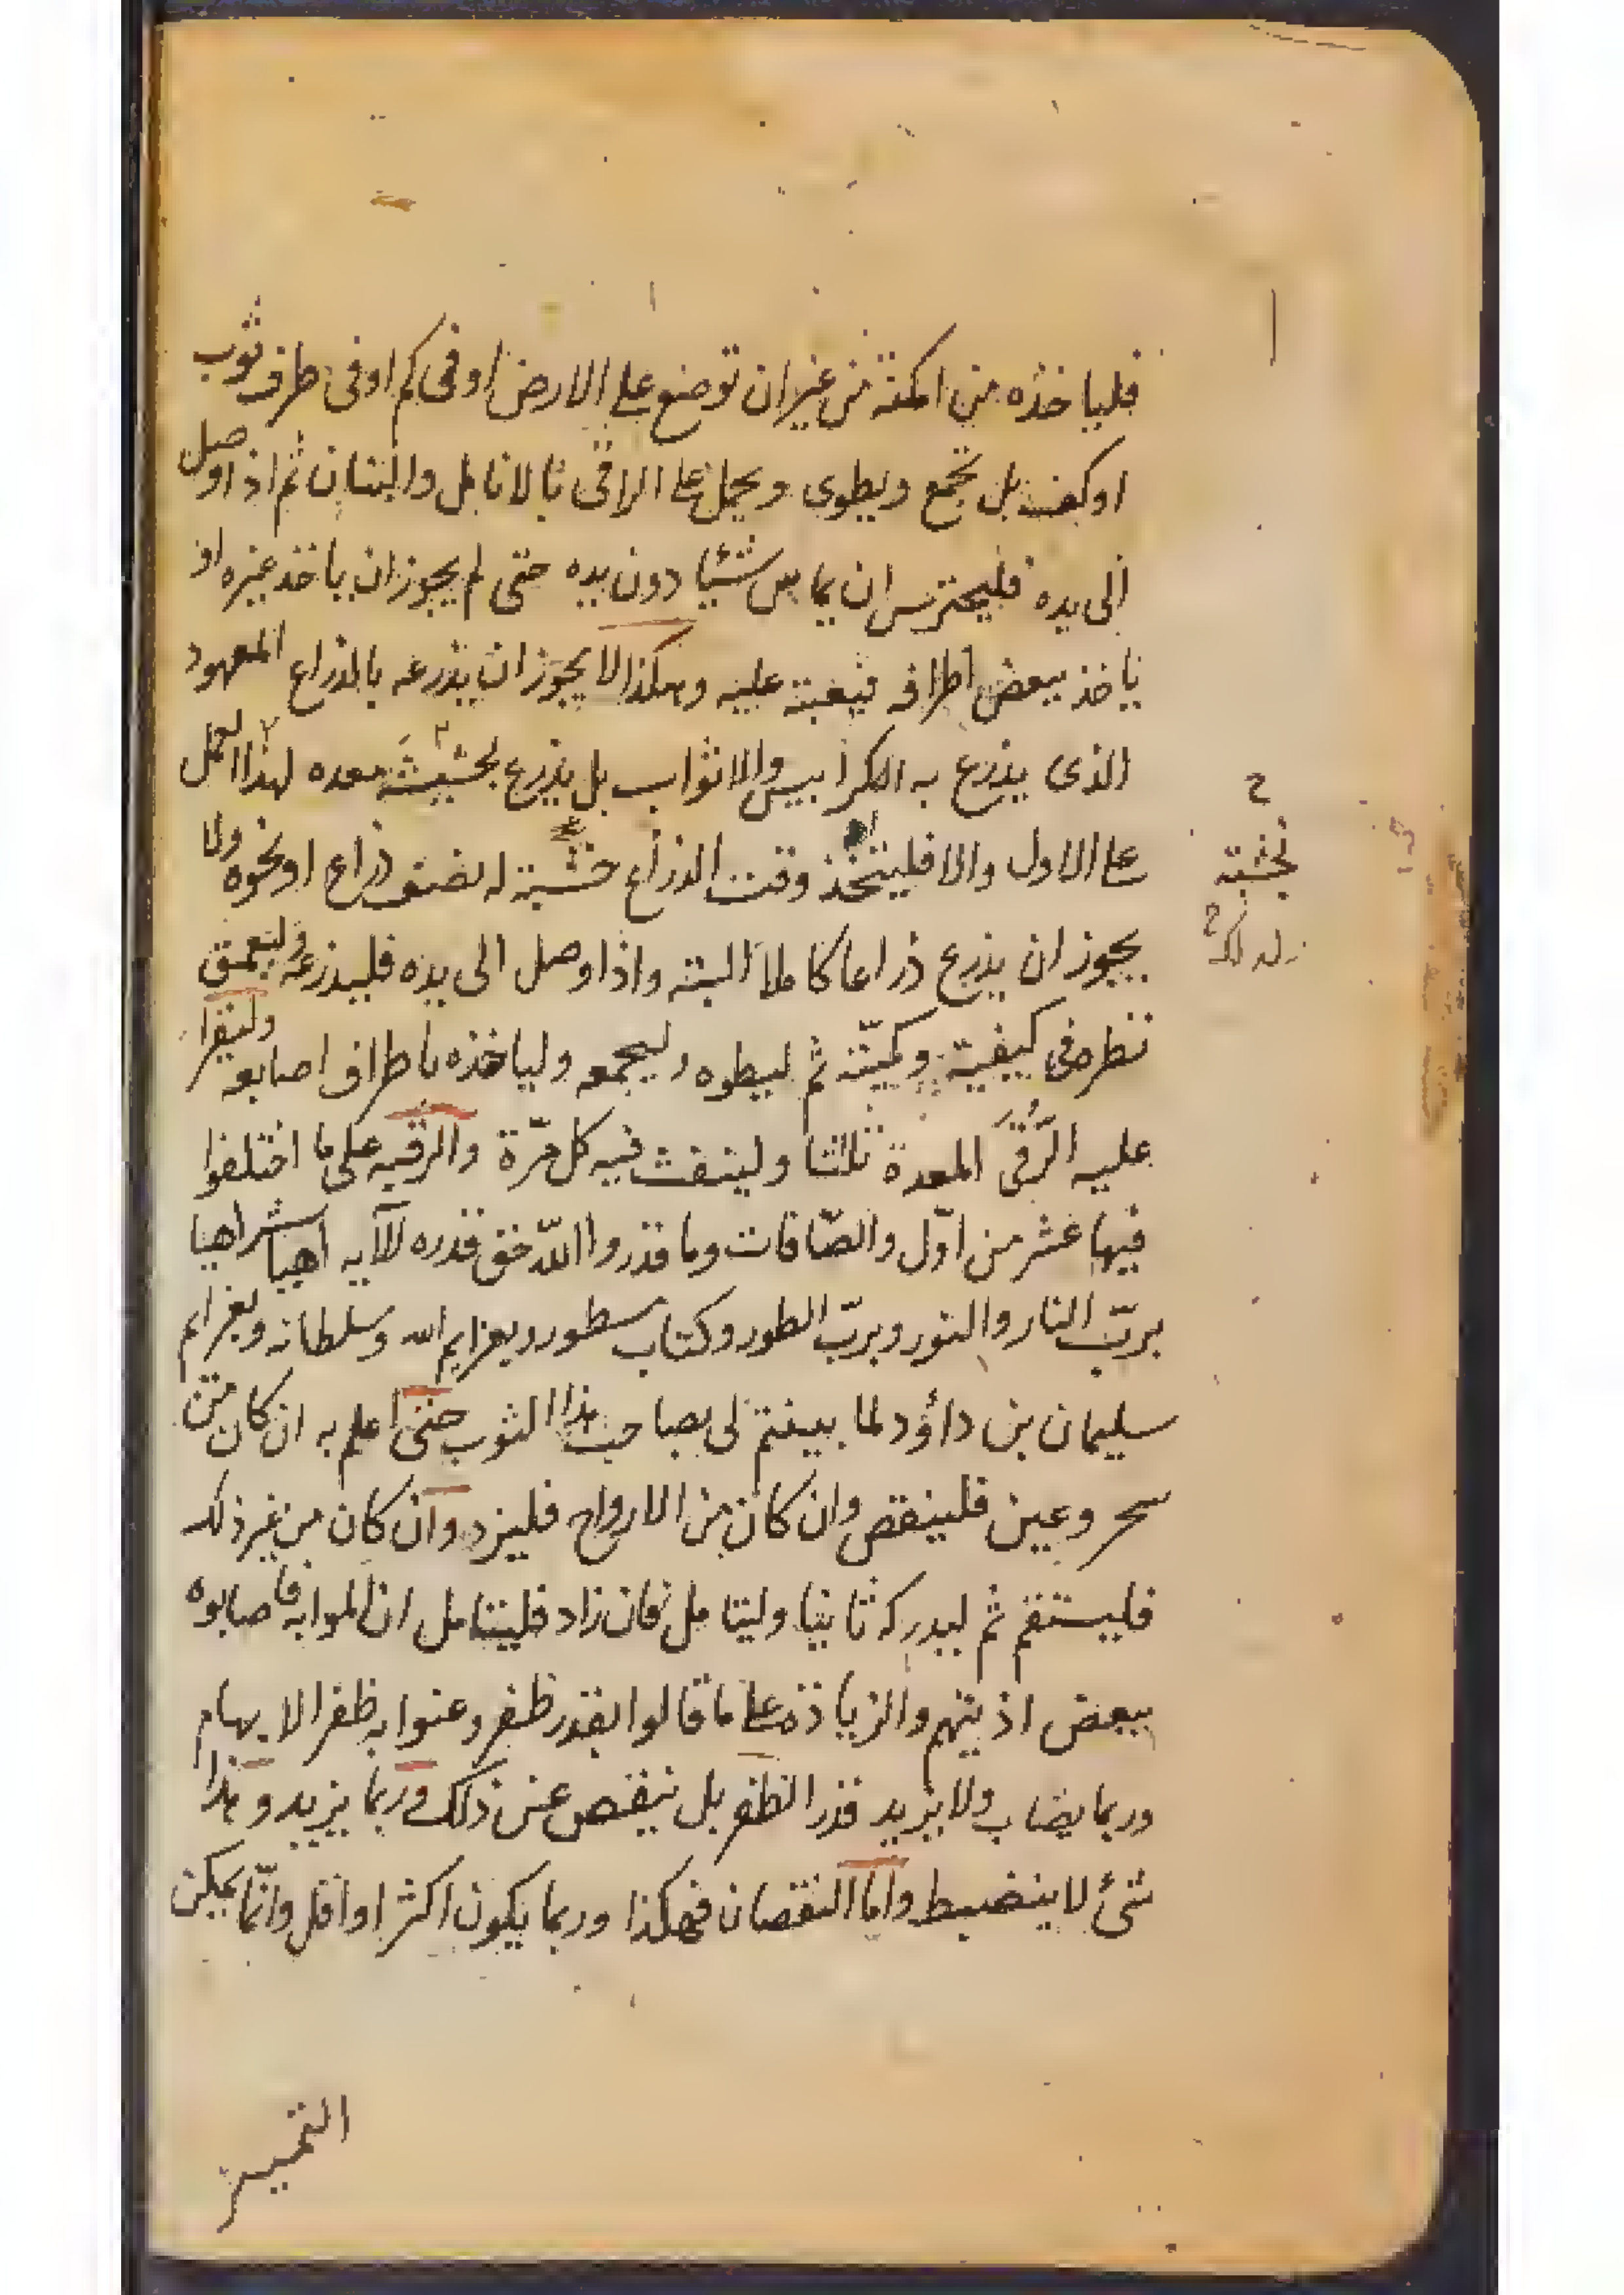 فلياخذه من امكنة من غير ان توضع على الارض او فى كم او فى طرف ثوب
او كيف بل تجمع ويطوى ويحمل على الراقى بالانامل والبنان ثم اذا وصل
الى يده فليحترس ان يماس شيئا دون يده حتى لم يجوز ان ياخذ غيره او
ياخذ ببعض اطرافه عليه وهكذا لا يجوز ان يذرعه بالذراع المعهود
الذى يذرع به الكرابيس والاثواب بل يذرع بخشبة معده لهذا العمل
على الاول والا فليتخذ وقت الذراع خشبة له نصف ذراع او نحوه ولا
يجوز ان يذرع ذراعا كاملا البتة واذا وصل الى يده فليذرعه وليعمق
نظره فى كيفيته وكميّته ثم ليطوه وليجمعه ولياخذه باطراف اصابعه وليقرا
عليه الرُّقَى المعدة ثلثا ولينفث فيه كل مرّة والرقيه على ما اختلفوا
فيها عشر من اوّل والصّافات وما قدروا اللّه حق قدره الآيه اهيا شراهيا
بربّ النار والنور وبربّ الطور وكتاب مسطور وبعزايم الله وسلطانه وبعزايم
سليمان بن داؤد لما بينتم لى بصاحب هذا الثوب حتى اعلم به ان كان من
سحر وعين فلينقص وان كان من الارواح فليزد وان كان من غير ذلك
فليستقم ثم ليدركه ثانيا وليتامل فان زاد فليتامل ان الموا به فاصابوه
ببعض اذيتهم والزيادة على ما قالوا بقدر ظفر وعنوا به ظفر الابهام
وربما يصاب ولا يزيد قدر الظفر بل ينقص عن ذلك وربما يزيد وهذا
شئ لا ينضبط واما النقصان فهكذا وربما يكون اكثر او اقل وانّما يمكن
التمييز
بخشبة